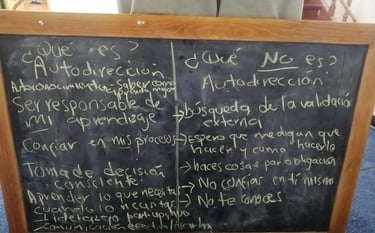 ¿Qué es?
Autodirección
Autoconocimiento - Saber como
aprendo mejor
Ser responsable de
mi aprendizaje
Confiar en mis procesos
Toma de decisión
consciente
Aprender lo que necesitas
cuando lo necesitas
Liderazgo
Comunicación
¿Qué NO es?
Autodirección?
→ búsqueda de la validación
externa
→ Espero que me digan que
hacer y como hacerlo
→ haces cosas por obligación
→ No confías en ti mismo
→ No te conoces